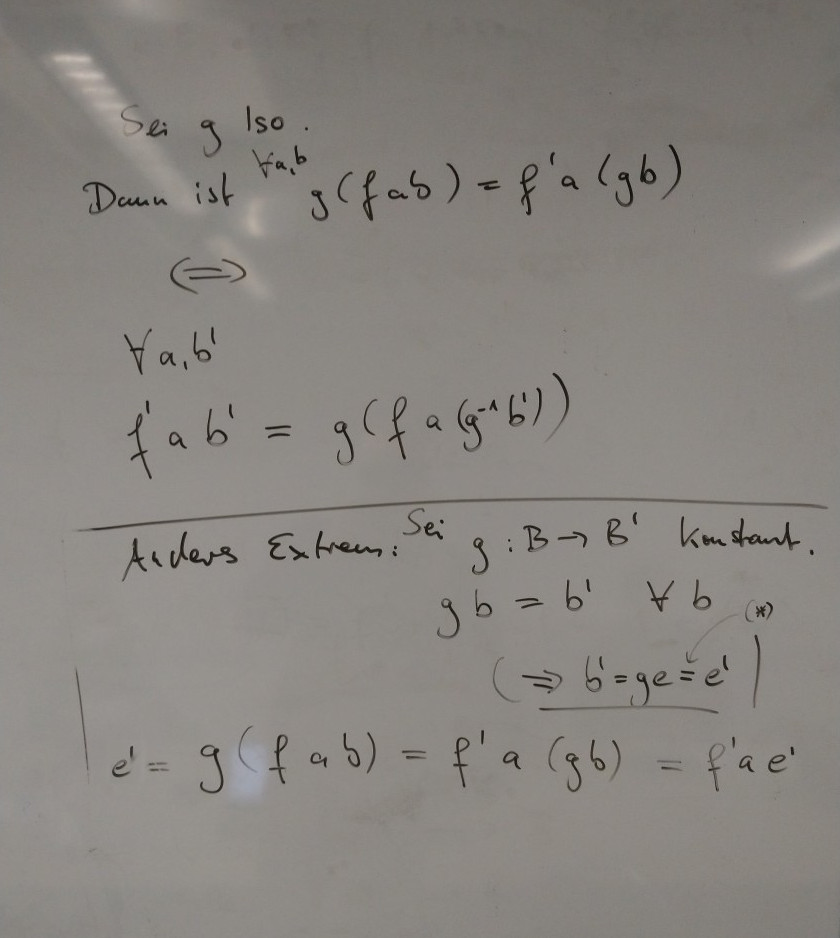 Sei g Iso.
Dann ist ∀a,b g(fab) = f'a (gb)
⟺
∀a,b'
f'ab' = g(fa(g⁻¹b'))
Anderes Extrem: Sei g : B → B' konstant.
gb = b' ∀b
(*)
(⇒ b' = ge = e'
e' = g(fab) = f'a (gb) = f'ae'